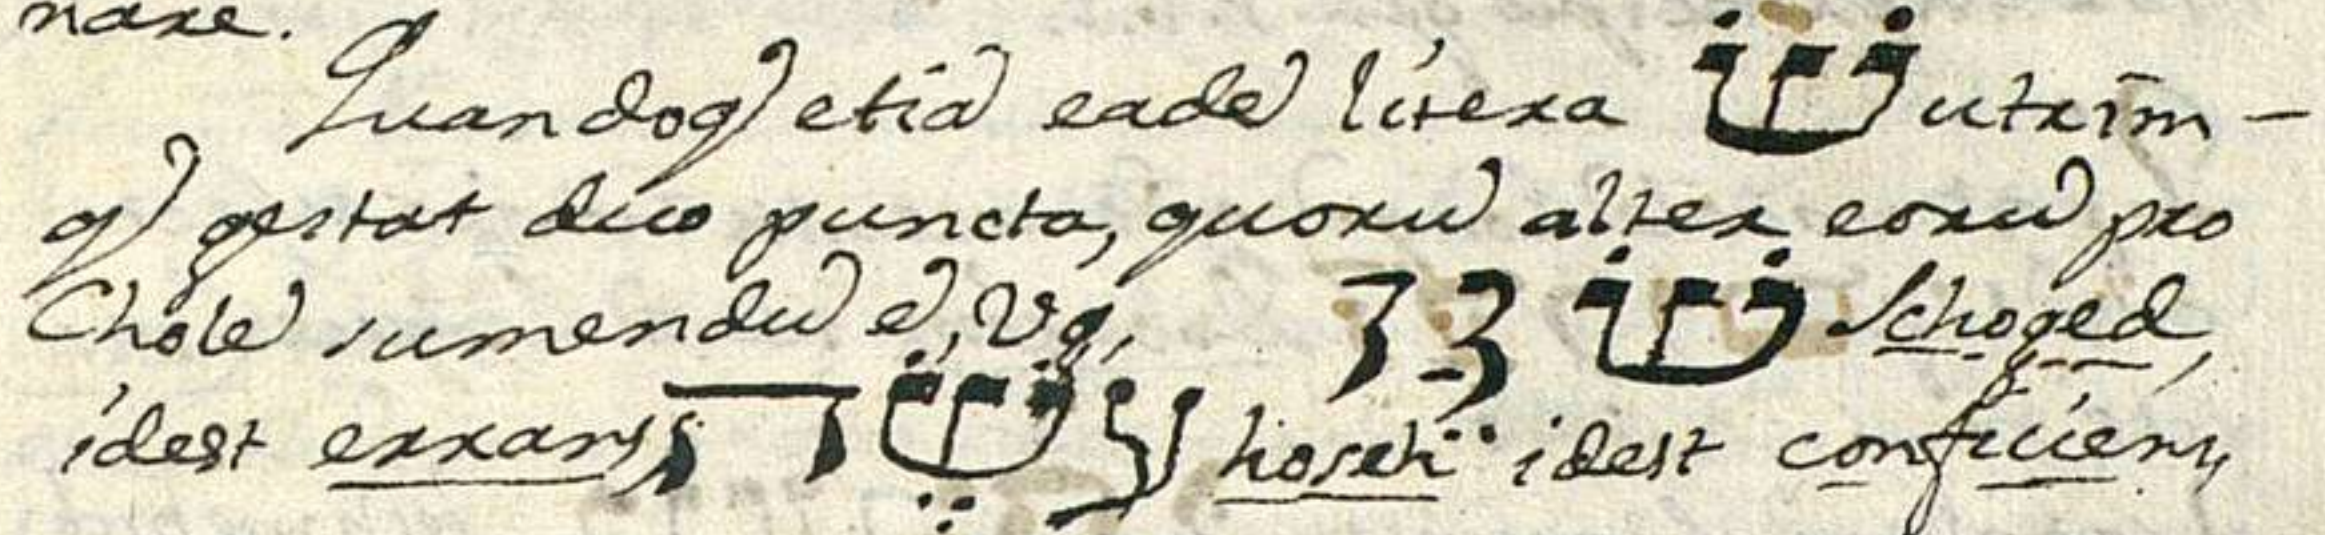 nare.
Quandoq̃ etiã eadẽ litera שׁׂ utrīm-
q̃ gestat duo puncta, quorũ alter eorũ pro
Cholẽ sumendũ ẽ, Vg, שׁׂגג Schoged,
idest errans, עשׁׂה hoseh idest conficiens,